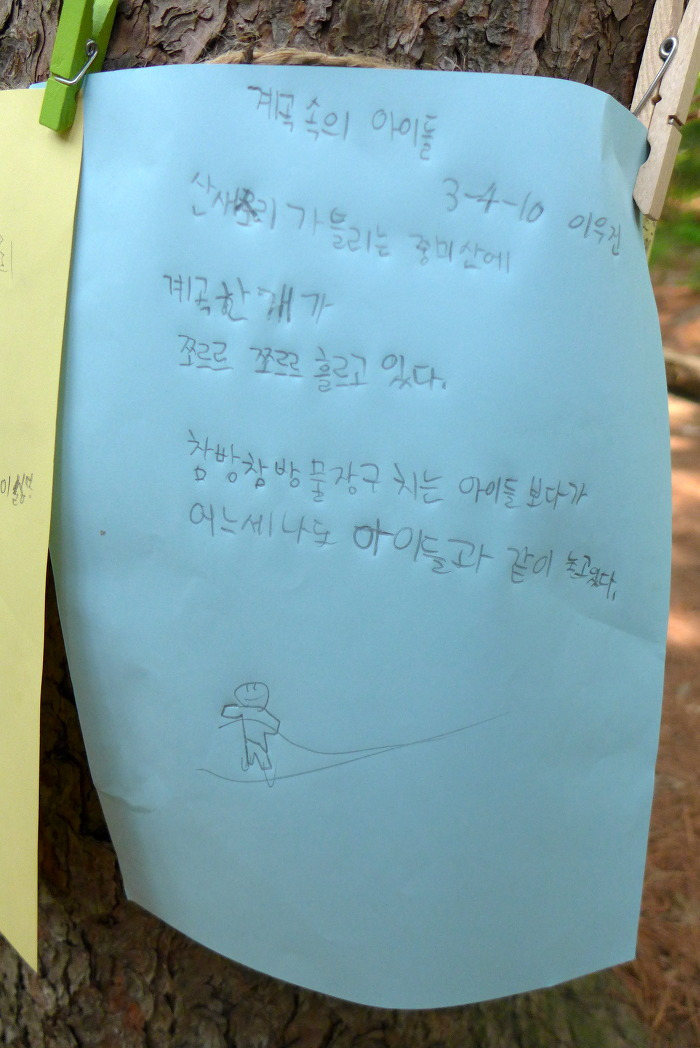 계곡 속의 아이들
3-4-10 이우진
산새소리가 들리는 중미산에
계곡 한 개가
쪼르르 쪼르르 흘르고 있다.
참방참방 물장구 치는 아이들 보다가
어느세 나도 아이들과 같이 놀고있다.